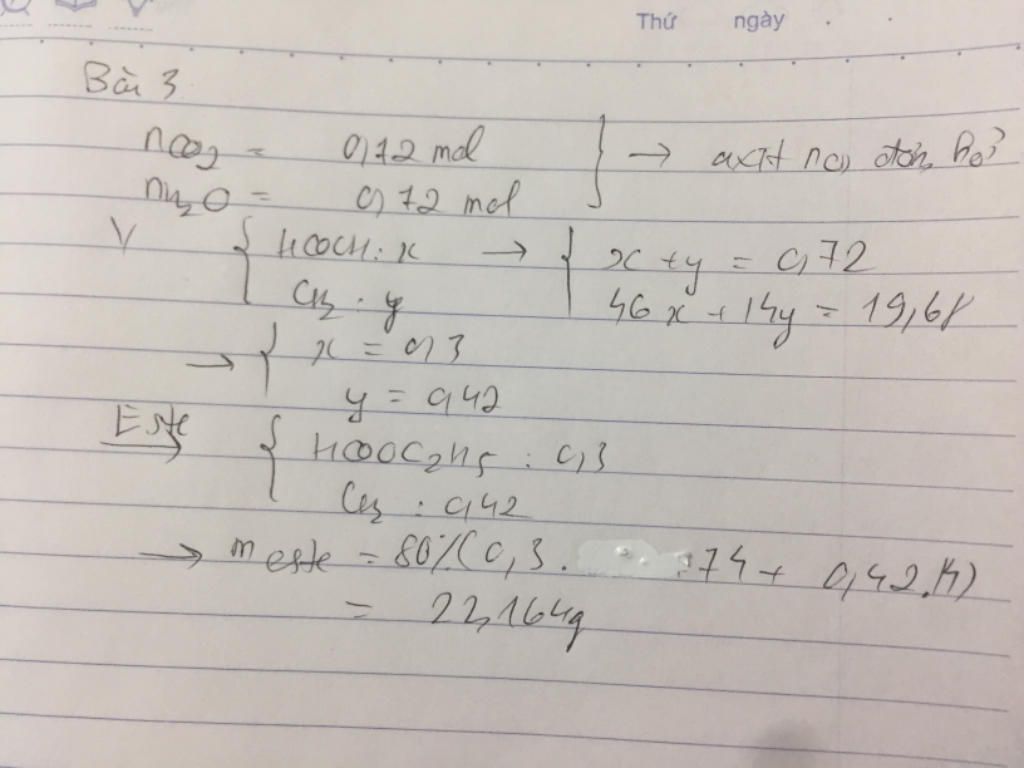 Thứ ngày
Bài 3
nCO2 = 0,72 mol
nH2O = 0,72 mol
} → axit no, đơn, hở
V { HCOOH: x → { x + y = 0,72
CH2 : y 46x + 14y = 19,68
→ { x = 0,3
y = 0,42
Este { HCOOC2H5 : 0,3
CH2 : 0,42
→ m este = 80%(0,3 . 74 + 0,42.14)
= 22,164g